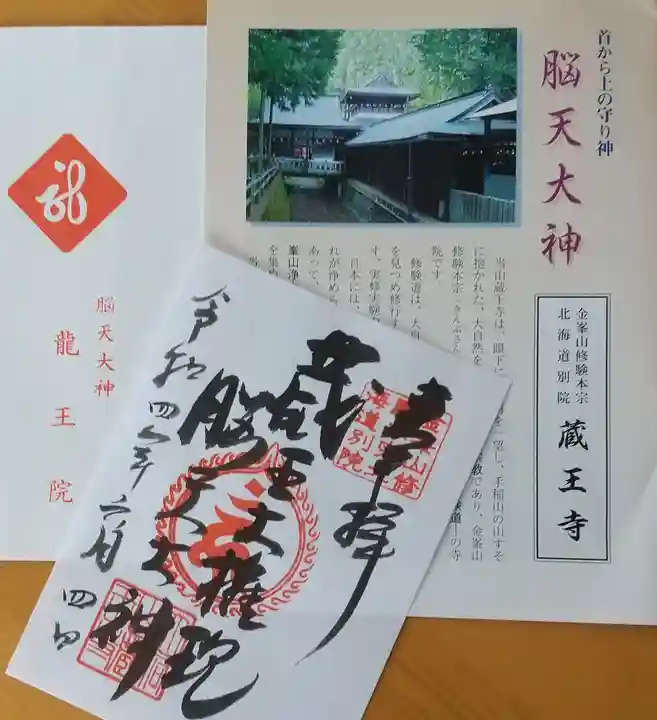 首から上の守り神
脳天大神
金峯山修験本宗
北海道別院
蔵王寺
当山蔵王寺は、眼下に
望し、手稲山の山すそ
に抱かれた、大自然を
教であり、金峯山
修験本宗
の寺
院です
修験道は、大自
を見つめ修行す
す。実修実験
日本には、
あって、
れが浄めら
峯山浄
を集め
脳天大神
龍王院
奉拝
蔵王大権現
脳天大神
令和四年六月四日